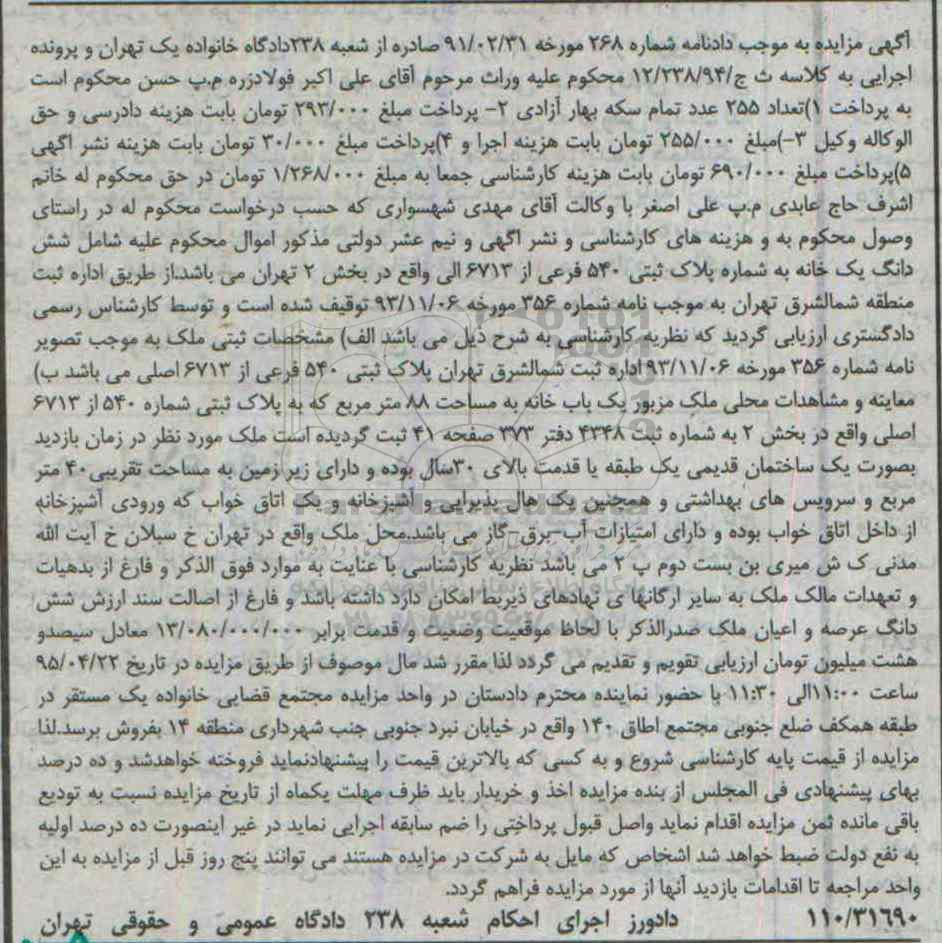 آگهی مزایده به موجب دادنامه شماره ۲۶۸ مورخه ۹۱/۰۲/۳۱ صادره از شعبه ۲۳۸دادگاه خانواده یک تهران و پرونده
اجرایی به کلاسه ث ج/۱۲/۲۳۸/۹۴ محکوم علیه وراث مرحوم آقای علی اکبر فولادزره م.پ حسن محکوم است
به پرداخت ۱)تعداد ۲۵۵ عدد تمام سکه بهار آزادی ۲- پرداخت مبلغ ۲۹۳/۰۰۰ تومان بابت هزینه دادرسی و حق
الوکاله وکیل ۳-)مبلغ ۲۵۵/۰۰۰ تومان بابت هزینه اجرا و ۴)پرداخت مبلغ ۳۰/۰۰۰ تومان بابت هزینه نشر اگهی
۵)پرداخت مبلغ ۶۹۰/۰۰۰ تومان بابت هزینه کارشناسی جمعا به مبلغ ۱/۲۶۸/۰۰۰ تومان در حق محکوم له خانم
اشرف حاج عابدی م.پ علی اصغر با وکالت آقای مهدی شهسواری که حسب درخواست محکوم له در راستای
وصول محکوم به و هزینه های کارشناسی و نشر اگهی و نیم عشر دولتی مذکور اموال محکوم علیه شامل شش
دانگ یک خانه به شماره پلاک ثبتی ۵۴۰ فرعی از ۶۷۱۳ الی واقع در بخش ۲ تهران می باشد.از طریق اداره ثبت
منطقه شمالشرق تهران به موجب نامه شماره ۳۵۶ مورخه ۹۳/۱۱/۰۶ توقیف شده است و توسط کارشناس رسمی
دادگستری ارزیابی گردید که نظریه کارشناسی به شرح ذیل می باشد الف) مشخصات ثبتی ملک به موجب تصویر
نامه شماره ۳۵۶ مورخه ۹۳/۱۱/۰۶ اداره ثبت شمالشرق تهران پلاک ثبتی ۵۴۰ فرعی از ۶۷۱۳ اصلی می باشد ب)
معاینه و مشاهدات محلی ملک مزبور یک باب خانه به مساحت ۸۸ متر مربع که به پلاک ثبتی شماره ۵۴۰ از ۶۷۱۳
اصلی واقع در بخش ۲ به شماره ثبت ۴۳۴۸ دفتر ۳۷۳ صفحه ۴۱ ثبت گردیده است ملک مورد نظر در زمان بازدید
بصورت یک ساختمان قدیمی یک طبقه یا قدمت بالای ۳۰سال بوده و دارای زیر زمین به مساحت تقریبی ۴۰ متر
مربع و سرویس های بهداشتی و همچنین یک هال پذیرایی و آشپزخانه و یک اتاق خواب که ورودی آشپزخانه
از داخل اتاق خواب بوده و دارای امتیازات آب-برق-گاز می باشد.محل ملک واقع در تهران خ سبلان خ آیت الله
مدنی ک ش میری بن بست دوم پ ۲ می باشد نظریه کارشناسی با عنایت به موارد فوق الذکر و فارغ از بدهیات
و تعهدات مالک ملک به سایر ارگانها ی نهادهای ذیربط امکان دارد داشته باشد و فارغ از اصالت سند ارزش شش
دانگ عرصه و اعیان ملک صدرالذکر با لحاظ موقعیت وضعیت و قدمت برابر ۱۳/۰۸۰/۰۰۰/۰۰۰ معادل سیصدو
هشت میلیون تومان ارزیابی تقویم و تقدیم می گردد لذا مقرر شد مال موصوف از طریق مزایده در تاریخ ۹۵/۰۴/۲۲
ساعت ۱۱:۰۰الی ۱۱:۳۰ با حضور نماینده محترم دادستان در واحد مزایده مجتمع قضایی خانواده یک مستقر در
طبقه همکف ضلع جنوبی مجتمع اطاق ۱۴۰ واقع در خیابان نبرد جنوبی جنب شهرداری منطقه ۱۴ بفروش برسد.لذا
مزایده از قیمت پایه کارشناسی شروع و به کسی که بالاترین قیمت را پیشنهادنماید فروخته خواهدشد و ده درصد
بهای پیشنهادی فی المجلس از بنده مزایده اخذ و خریدار باید ظرف مهلت یکماه از تاریخ مزایده نسبت به تودیع
باقی مانده ثمن مزایده اقدام نماید واصل قبول پرداختی را ضم سابقه اجرایی نماید در غیر اینصورت ده درصد اولیه
به نفع دولت ضبط خواهد شد اشخاص که مایل به شرکت در مزایده هستند می توانند پنج روز قبل از مزایده به این
واحد مراجعه تا اقدامات بازدید آنها از مورد مزایده فراهم گردد.
۱۱۰/۳۱۶۹۰ دادورز اجرای احکام شعبه ۲۳۸ دادگاه عمومی و حقوقی تهران